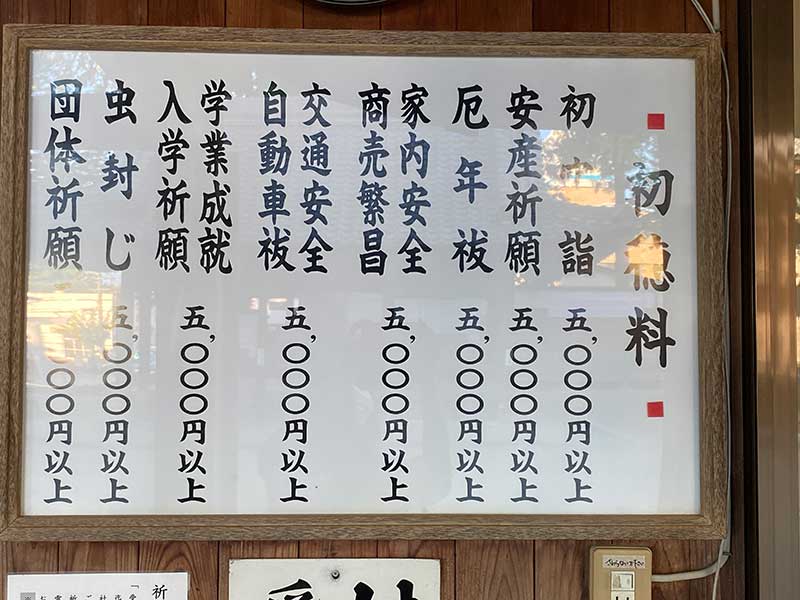 初穂料
初宮詣 五,〇〇〇円以上
安産祈願 五,〇〇〇円以上
厄年祓 五,〇〇〇円以上
家内安全
商売繁昌 五,〇〇〇円以上
交通安全
自動車祓 五,〇〇〇円以上
学業成就
入学祈願 五,〇〇〇円以上
虫封じ 五,〇〇〇円以上
団体祈願 〇〇円以上
祈